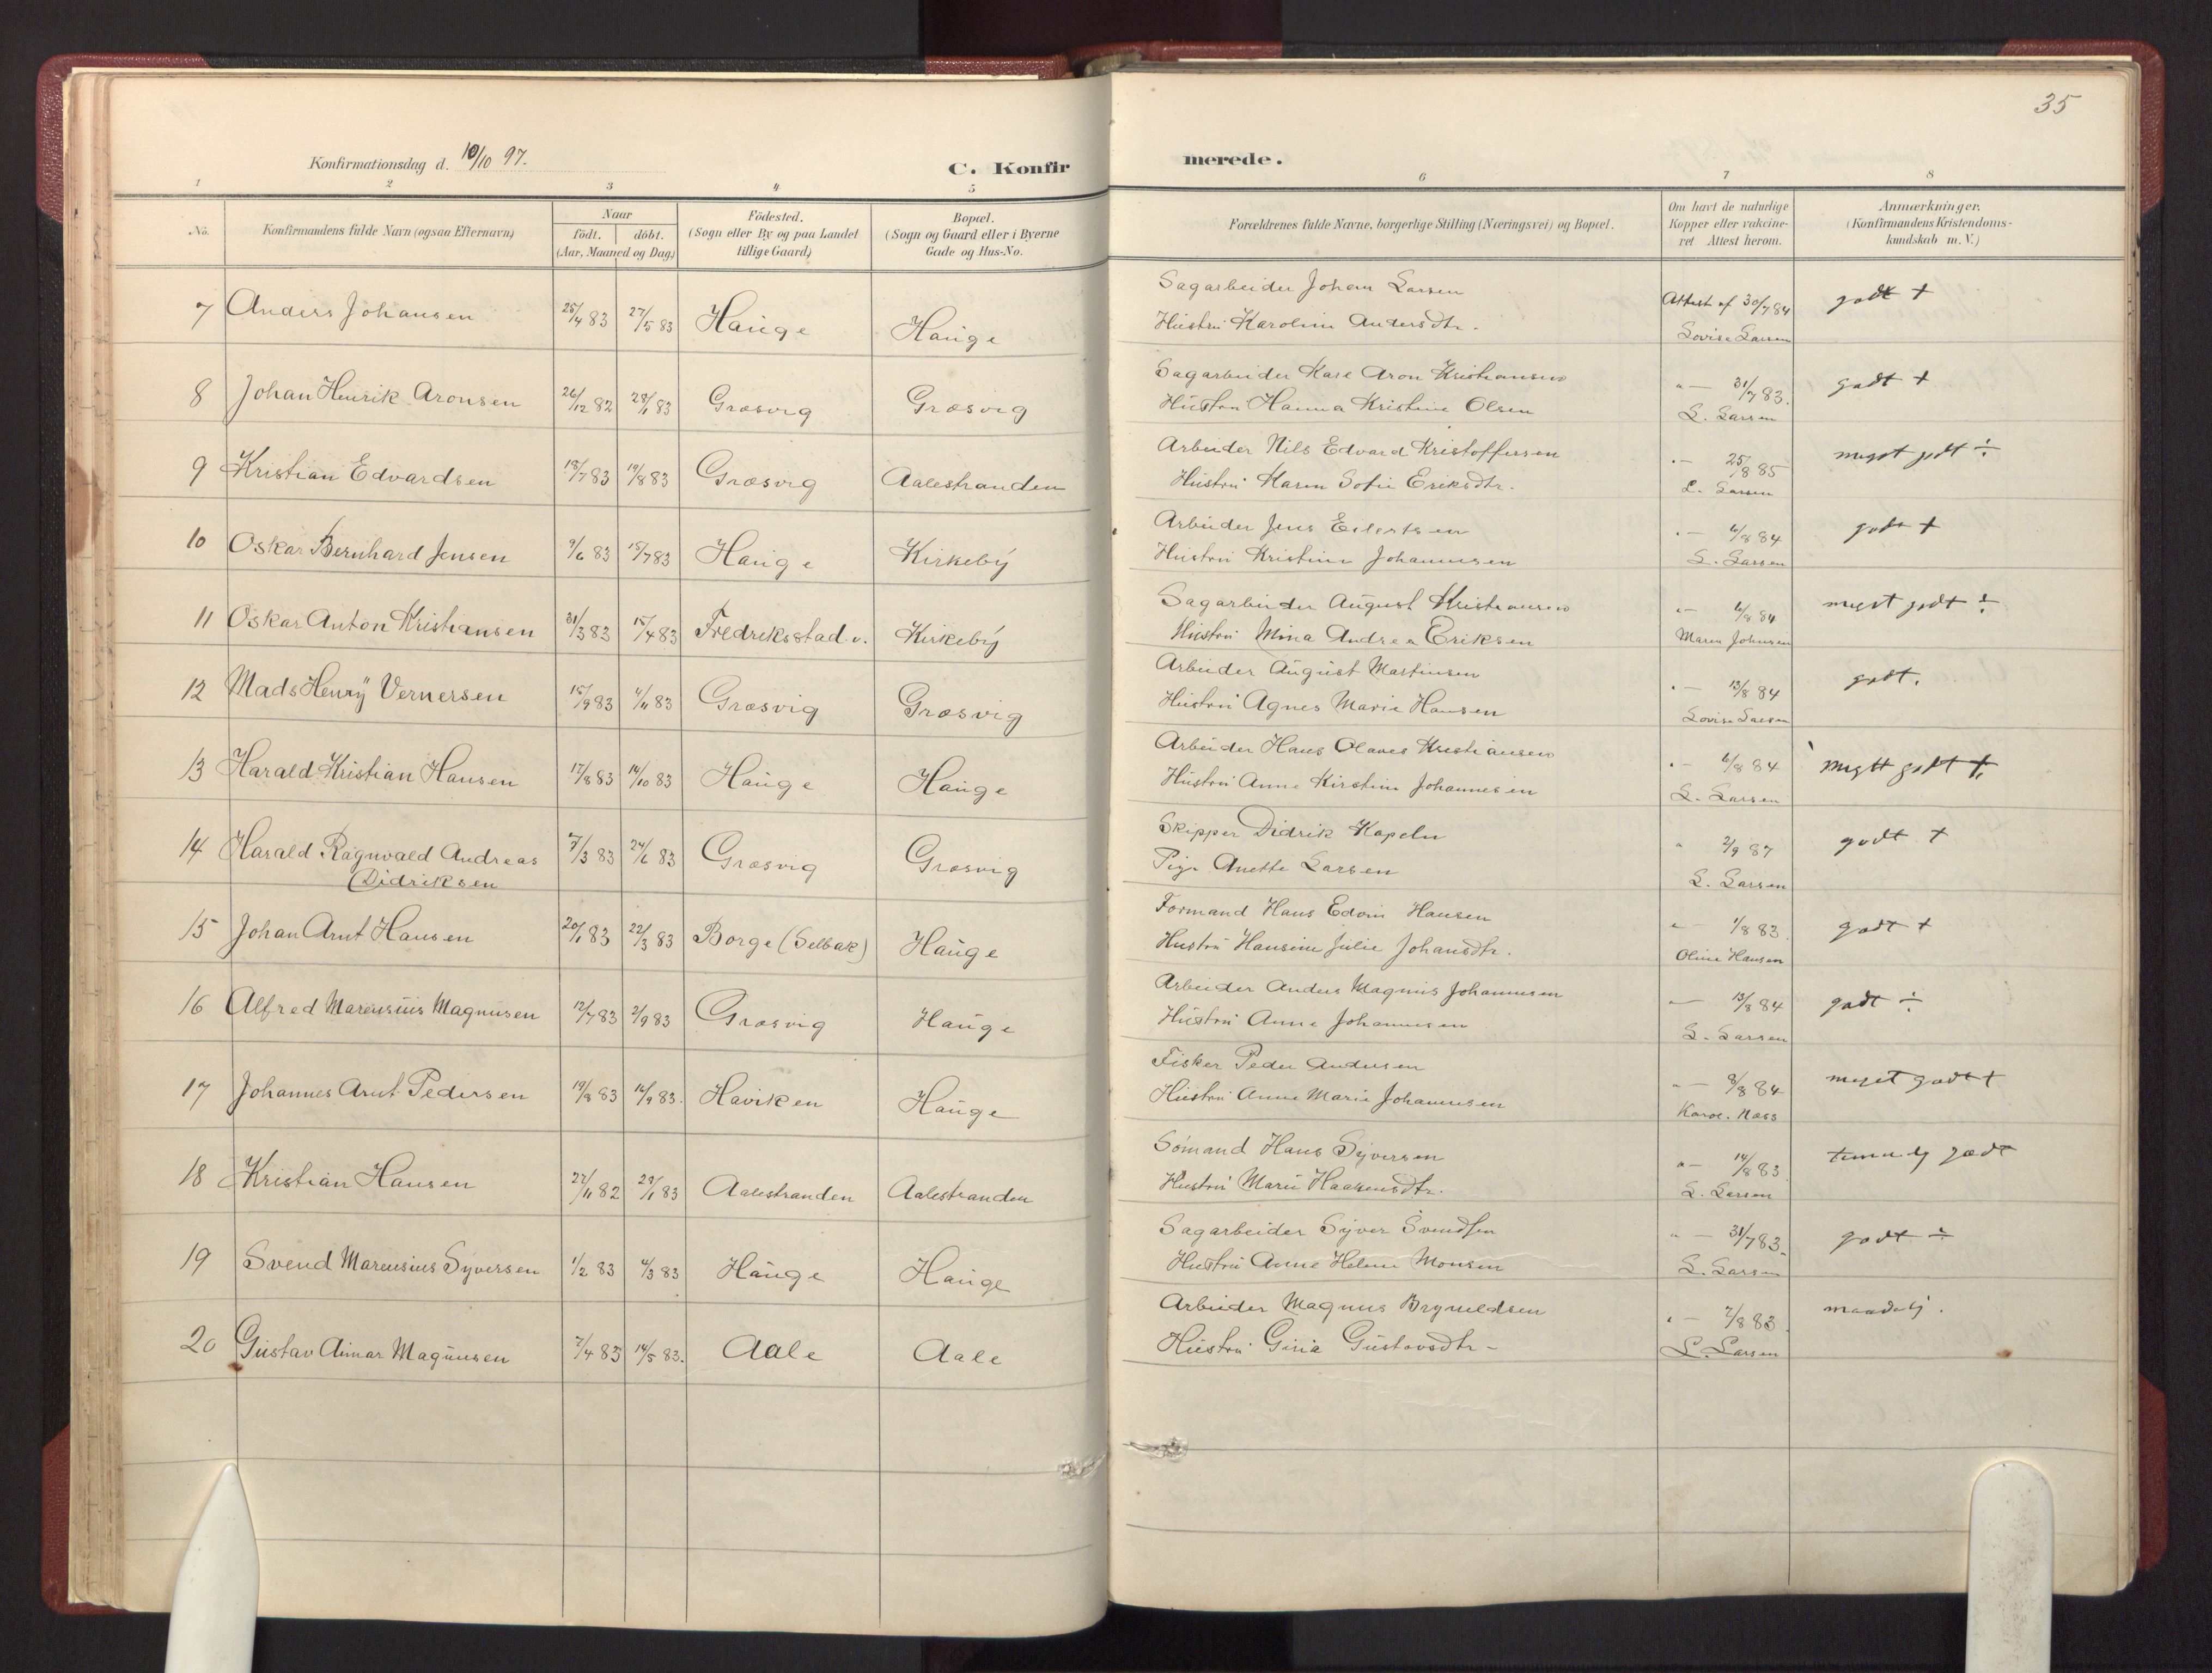 35
Konfirmationsdag d. 10/10 97.
C. Konfirmerede.
1 2 3 4 5 6 7 8
No.
Konfirmandens fulde Navn (ogsaa Efternavn)
Naar
födt. döbt.
(Aar, Maaned og Dag)
Födested.
(Sogn eller By og paa Landet
tillige Gaard)
Bopæl.
(Sogn og Gaard eller i Byerne
Gade og Hus-No.
Forældrenes fulde Navne, borgerlige Stilling (Næringsvei) og Bopæl.
Om havt de naturlige
Kopper eller vakcine-
ret Attest herom.
Anmærkninger.
(Konfirmandens Kristendoms-
kundskab m. V.)
7 Anders Johansen 25/4 83 27/5 83 Hauge Hauge
Sagarbeider Johan Larsen
Hustru Karoline Andersdtr.
Attest af 30/7 84
Lovise Larsen
godt +
8 Johan Henrik Aronsen 26/12 82 28/1 83 Græsvig Græsvig
Sagarbeider Karl Aron Kristiansen
Hustru Hanna Kristine Olsen
" — 31/7 83.
L. Larsen
godt +
9 Kristian Edvardsen 18/7 83 19/8 83 Græsvig Aalestranden
Arbeider Nils Edvard Kristoffersen
Hustru Karen Sofie Eriksdtr.
" — 25/8 85
L. Larsen
meget godt ÷
10 Oskar Bernhard Jensen 9/6 83 15/7 83 Hauge Kirkeby
Arbeider Jens Eilertsen
Hustru Kristine Johannesen
" — 6/8 84
L. Larsen
godt +
11 Oskar Anton Kristiansen 31/3 83 15/4 83 Fredriksstad v. Kirkeby
Sagarbeider August Kristiansen
Hustru Mina Andrea Eriksen
" — 6/8 84
Maren Johnsen
meget godt ÷
12 Mads Henry Vernersen 15/9 83 4/11 83 Græsvig Græsvig
Arbeider August Martinsen
Hustru Agnes Marie Hansen
" — 13/8 84
Lovise Larsen
godt.
13 Harald Kristian Hansen 17/8 83 14/10 83 Hauge Hauge
Arbeider Hans Olaves Kristiansen
Hustru Anne Kirstine Johannesen
" — 6/8 84
L. Larsen
meget godt +
14 Harald Ragnvald Andreas
Didriksen
7/3 83 24/6 83 Græsvig Græsvig
Skipper Didrik Kapeln
Pige Anette Larsen
" 2/9 87
L. Larsen
godt +
15 Johan Arnt Hansen 20/1 83 22/3 83 Borge (Selbak) Hauge
Formand Hans Edvin Hansen
Hustru Hansine Julie Johansdtr.
" — 1/8 83.
Oline Hansen
godt +
16 Alfred Marensius Magnusen 12/7 83 2/9 83 Græsvig Hauge
Arbeider Anders Magnus Johannesen
Hustru Anne Johannesen
" — 13/8 84
L. Larsen
godt ÷
17 Johannes Arnt Pedersen 19/8 83 14/9 83. Haviken Hauge
Fisker Peder Andersen
Hustru Anne Marie Johannesen
" — 8/8 84
Karol. Næss
meget godt +
18 Kristian Hansen 27/11 82 28/1 83 Aalestranden Aalestranden
Sömand Hans Syversen
Hustru Marie Haakensdtr.
" — 14/8 83
L. Larsen
temmelig godt
19 Svend Marensius Syversen 1/2 83 4/3 83 Hauge Hauge
Sagarbeider Syver Svendsen
Hustru Anne Helene Monsen
" — 31/7 83.
L. Larsen
godt ÷
20 Gustav Aimar Magnusen 7/4 83 14/5 83. Aale Aale
Arbeider Magnus Bryneldsen
Hustru Gina Gustavsdtr -
" — 7/8 83.
L. Larsen
maadelig.